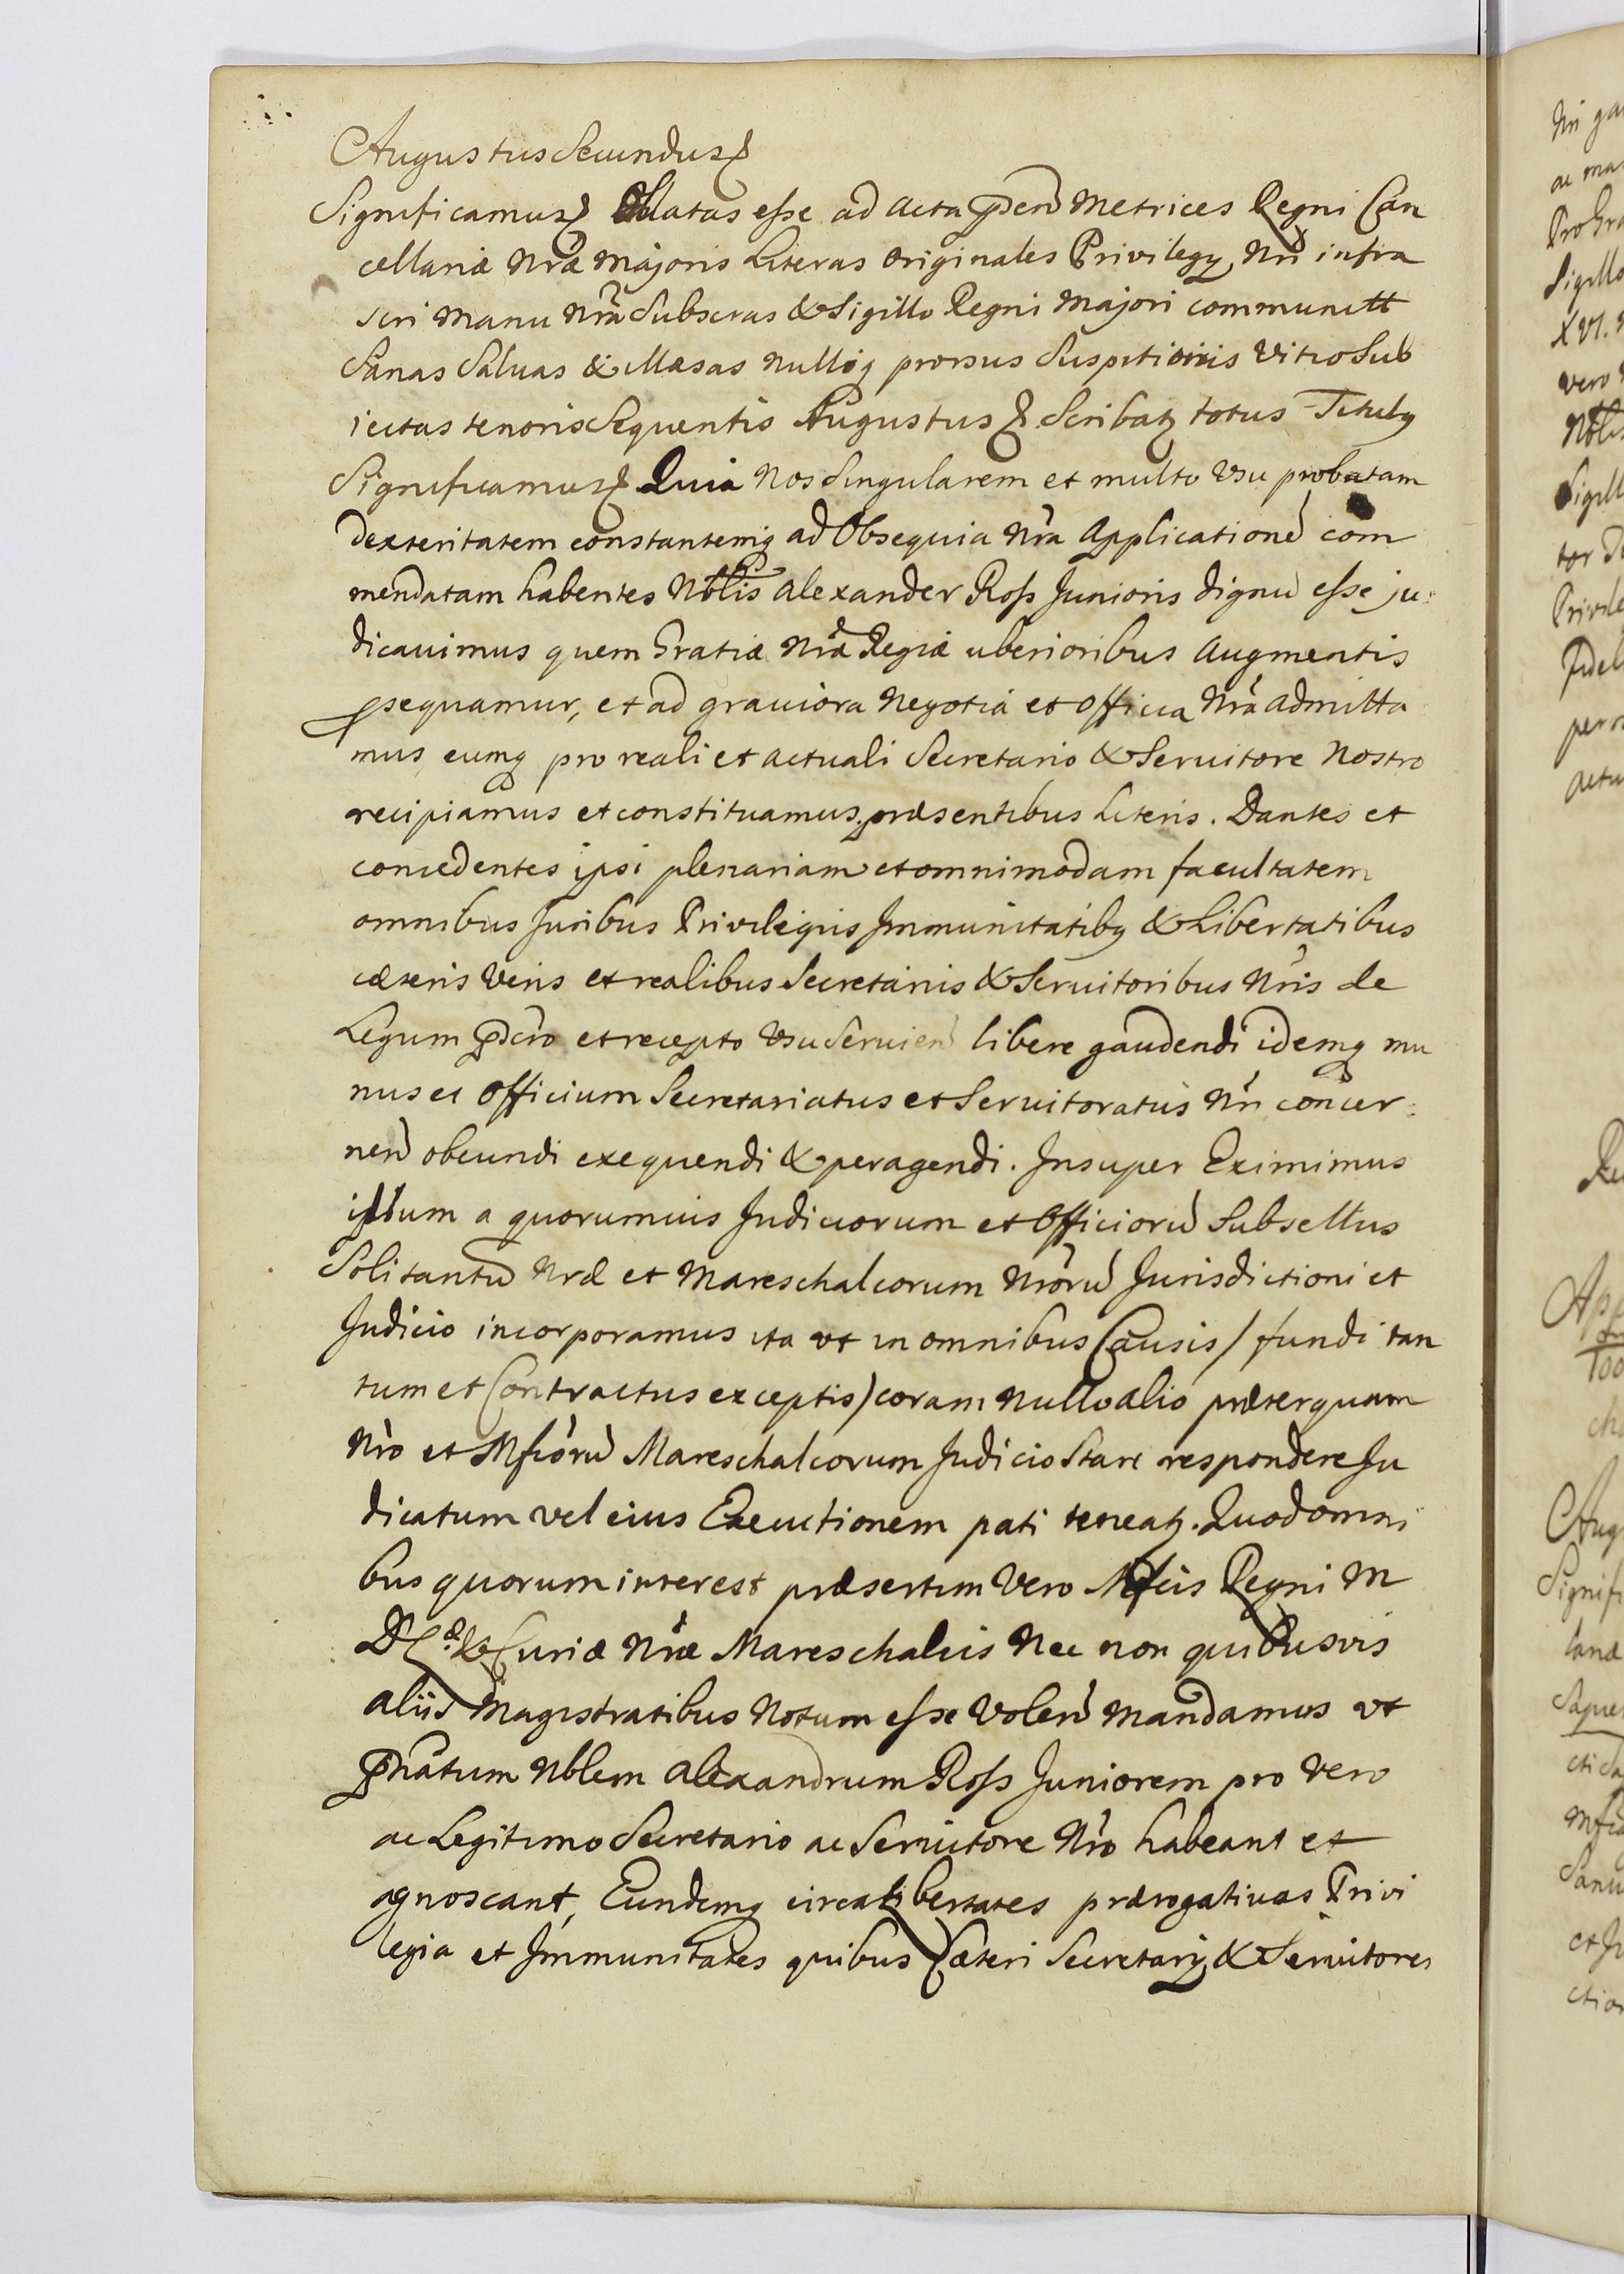 Augustus Secundus &
Significamus & Oblatas esse ad acta pnden Metrices Regni Can
cellariæ Nræ Majoris Literas originales Privilegy Nri infra
scri Manu Nra Subscras & Sigillo Regni Majori communitt
Sanas Salvas & illæsas nulloq prorsus Suspitionis Vitio Sub
iectas tenoris Sequentis Augustus & Scribatz totus Tituly
Significamus & Quia Nos Singularem et multo Usu probatam
dexteritatem constantemq ad Obsequia Nra Applicatione com
mendatam habentes Nblis Alexander Ross Junioris dignu esse ju:
dicavimus quem Gratiæ Nræ Regiæ uberioribus Augmentis
psequamur, et ad graviora Negotia et Officia Nra admitta
mus, eumq pro reali et actuali Secretario & Servitore Nostro
recipiamus et constituamus præsentibus Literis. Dantes et
concedentes ipsi plenariam et omnimodam facultatem
omnibus Juribus Privilegiis Immunitatiby & Libertatibus
cæteris Veris et realibus Secretariis & Servitoribus Nris de
Legum pscro et recepto Usu Servien libere gaudendi idemq mu
nus et Officium Secretariatus et Servitoratus Nri concer:
nen obeundi exequendi & peragendi. Insuper Eximimus
ipsum a quorumvis Judiciorum et Officioru Subselliis
Solitantu Nræ et Mareschalcorum Nroru Jurisdictioni et
Judicio incorporamus ita ut in omnibus Causis / fundi tan
tum et Contractus exceptis) coram nullo alio præterquam
Nro et Mficoru Mareschalcorum Judicio Stare respondere Ju
dicatum vel eius Executionem pati teneatz. Quod omni
bus quorum interest præsertim Vero Mficis Regni M
D L & Curiæ Nræ Mareschalcis Nec non quibusvis
aliis Magistratibus Notum esse Volen mandamus ut
pnatum Nblem Alexandrum Ross Juniorem pro Vero
ac Legitimo Secretario ac Servitore Nro habeant et
agnoscant, Eundemq circa Libertates prærogativas Privi
legia et Immunitates quibus Cæteri Secretarij & Servitores